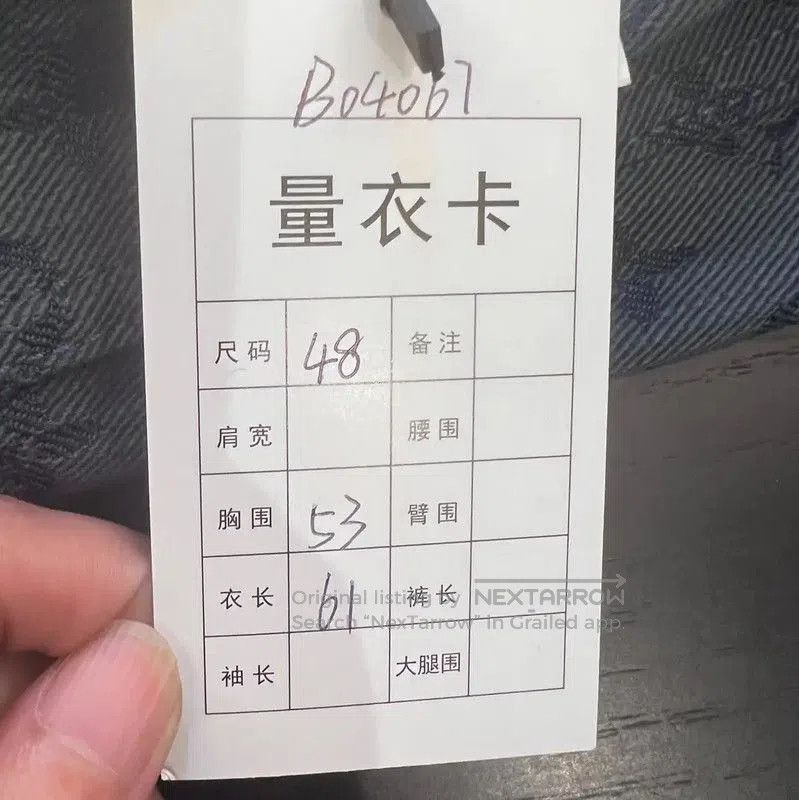 B04067
量衣卡
尺码 48 备注
肩宽 腰围
胸围 53 臂围
衣长 61 裤长
袖长 大腿围
Original listing by NEXTARROW
Search "NexTarrow" in Grailed app.